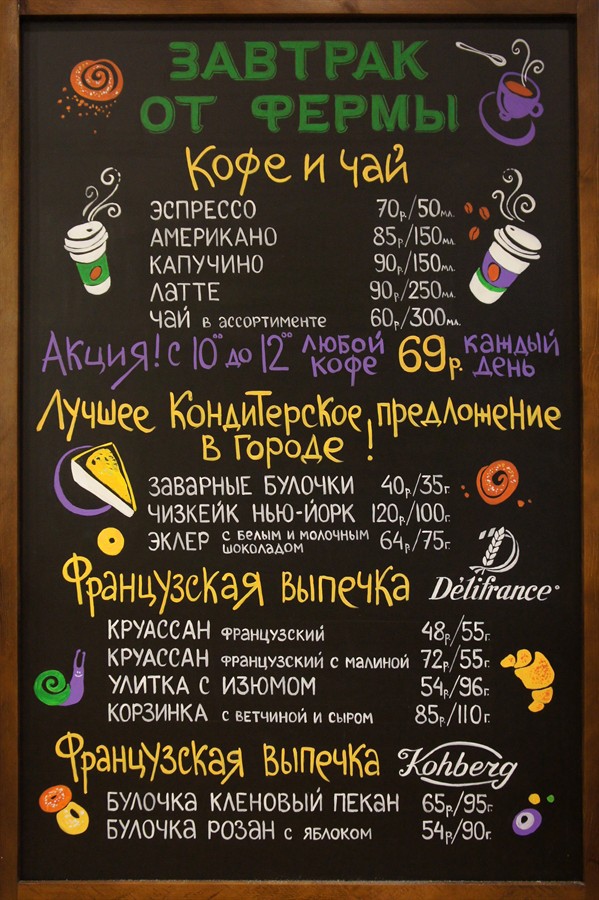 ЗАВТРАК
ОТ ФЕРМЫ
Кофе и чай
ЭСПРЕССО 70р./50мл.
АМЕРИКАНО 85р./150мл.
КАПУЧИНО 90р./150мл.
ЛАТТЕ 90р./250мл.
ЧАЙ в ассортименте 60р./300мл.
Акция! с 10°° до 12°° любой кофе 69р. каждый день
Лучшее кондитерское предложение
в городе!
ЗАВАРНЫЕ БУЛОЧКИ 40р./35г.
ЧИЗКЕЙК НЬЮ-ЙОРК 120р./100г.
ЭКЛЕР с белым и молочным шоколадом 64р./75г.
Французская выпечка Délifrance
КРУАССАН французский 48р./55г.
КРУАССАН французский с малиной 72р./55г.
УЛИТКА С ИЗЮМОМ 54р./96г.
КОРЗИНКА с ветчиной и сыром 85р./110г.
Французская выпечка Kohberg
БУЛОЧКА КЛЕНОВЫЙ ПЕКАН 65р./95г.
БУЛОЧКА РОЗАН с яблоком 54р./90г.